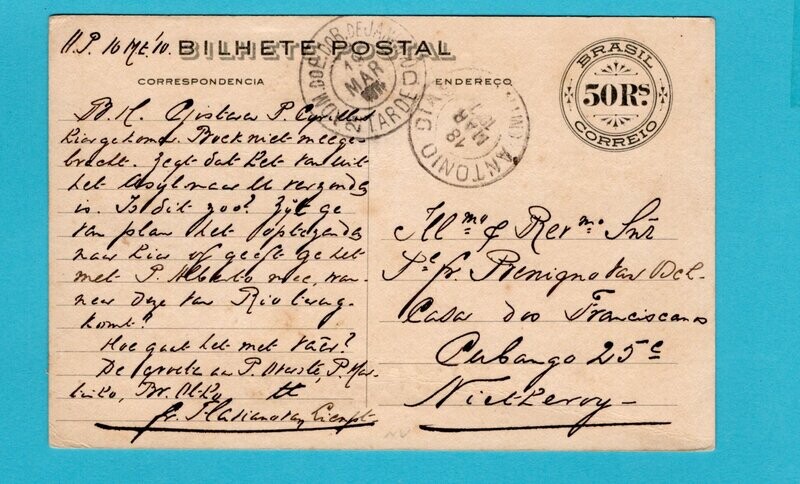 16 Mrt '10.
BILHETE POSTAL
CORRESPONDENCIA
ENDEREÇO
BRASIL
50 Rs.
CORREIO
MAR
TARDE
ANTONIO
18
MAR
P. Cyrillus
hier gekomen. Boek niet meege-
bracht. Zegt dat het van uit
het verzonden
is. Is dit zoo? Zijt ge
van plan het op te zenden
naar hier of geeft ge het
met P. Alberto mee, wan-
neer deze van Rio terug-
komt?
Hoe gaat het met Vader?
De groeten aan P.
fr.
Illmo & Revmo Snr
Pe fr. Benigno van
Casa dos Franciscanos
Cubango 25c
Nictheroy